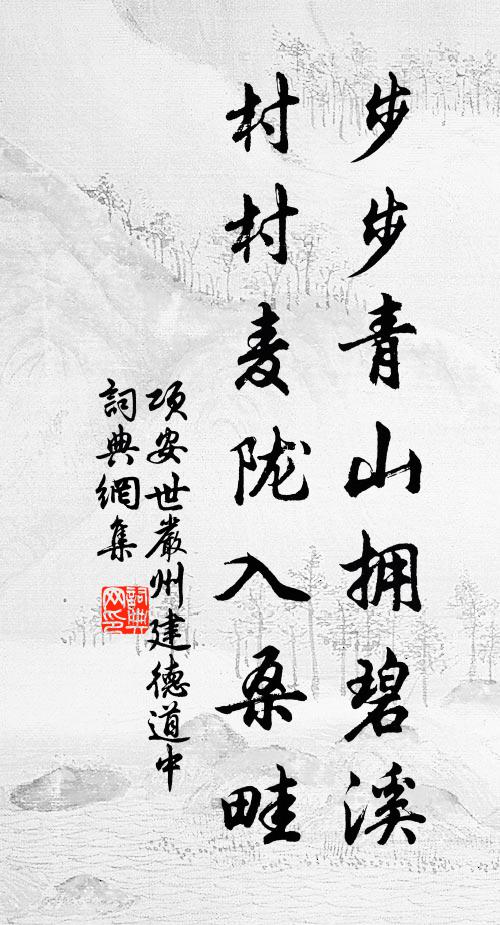 步步青山拥碧溪
村村麦陇入桑畦
项安世嚴州建德道中
詞典網集
詞典网印